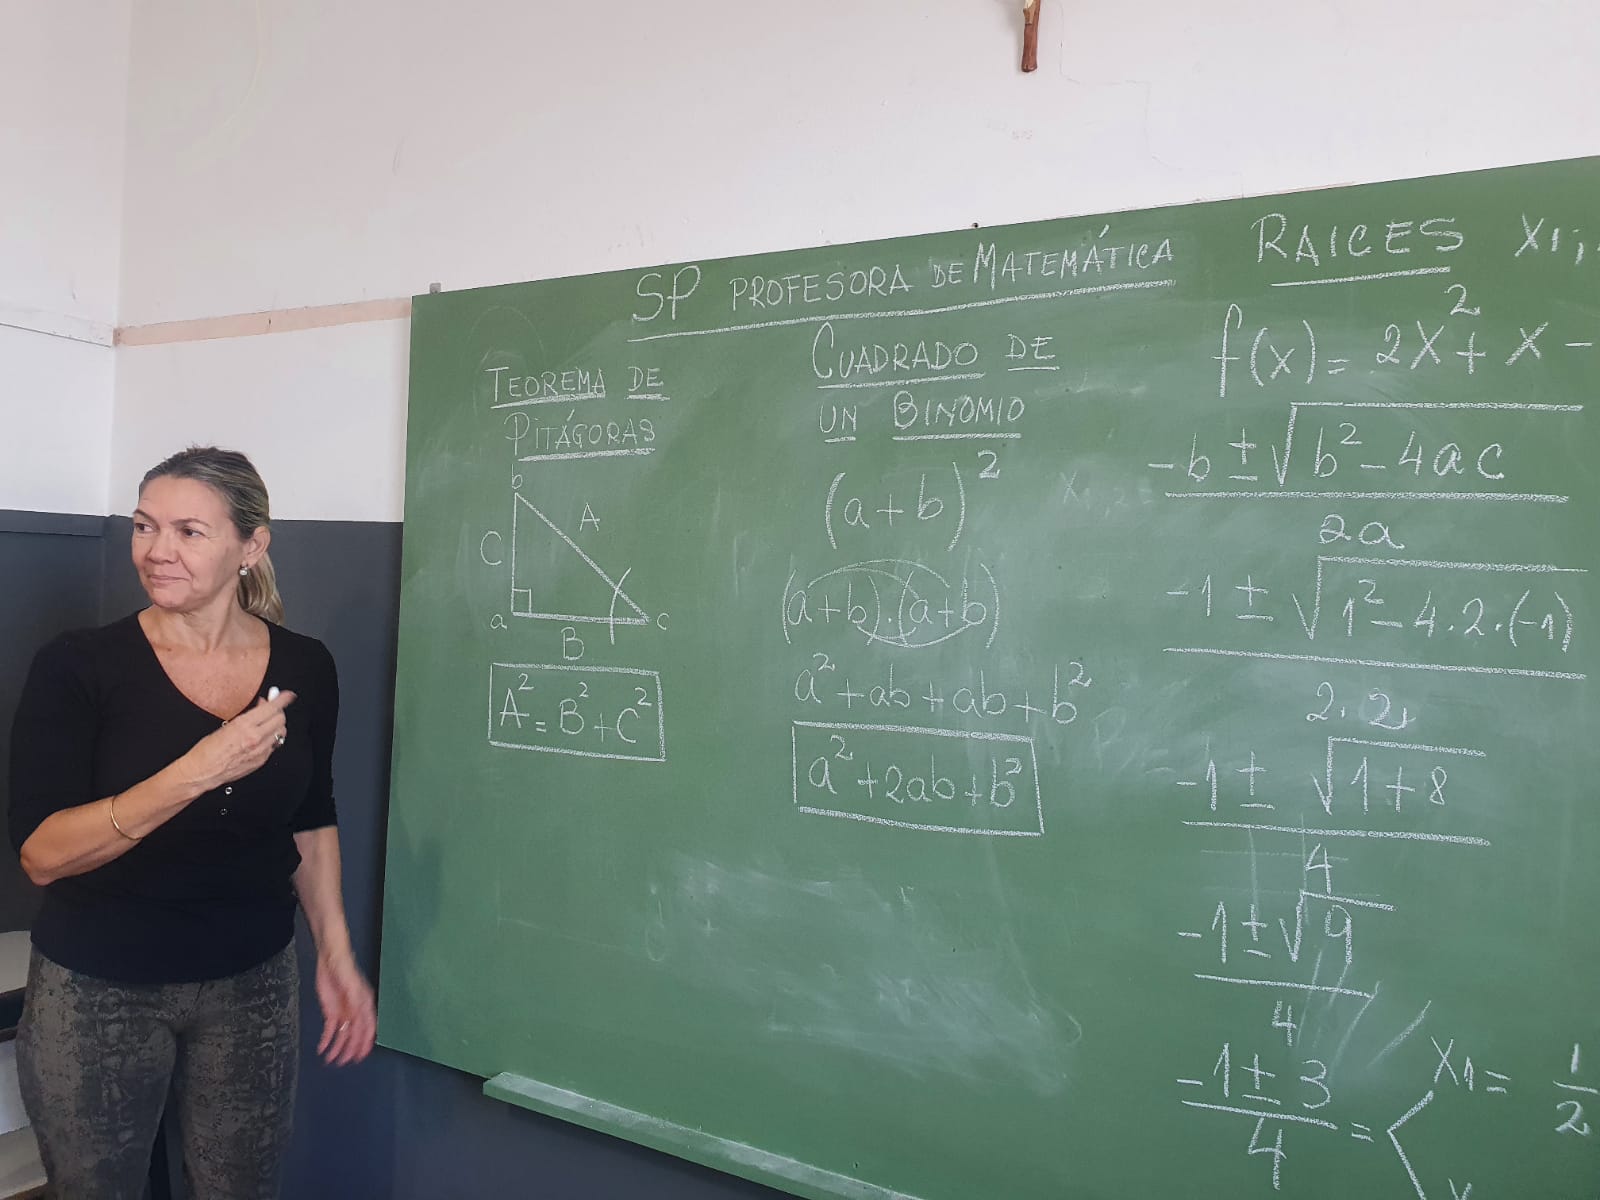 SP PROFESORA DE MATEMÁTICA
TEOREMA DE
PITÁGORAS
b
C A
a B c
A² = B² + C²
CUADRADO DE
UN BINOMIO
(a+b)²
(a+b).(a+b)
a²+ab+ab+b²
a²+2ab+b²
RAICES X1;
f(x) = 2X²+ X -
-b ± √b² - 4ac
2a
-1 ± √1² - 4.2.(-1)
2.2
-1 ± √1+8
4
-1 ± √9
4
-1 ± 3
4
= X1 = 1/2